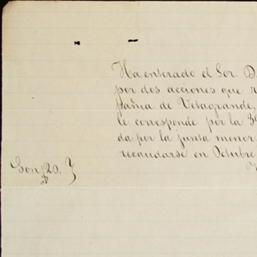 Ha enterado el Sor. D
por dos acciones que
pañia de Vetagrande,
le corresponde por la 3
da por la junta menor
recaudarse en Octubre
Son $20.